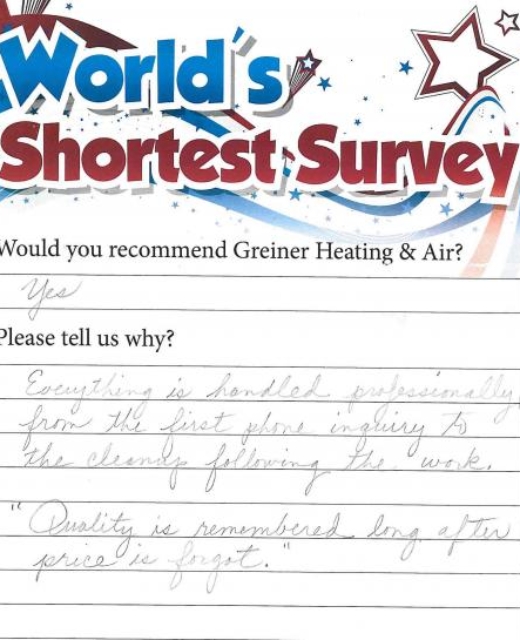 World's
Shortest Survey
Would you recommend Greiner Heating & Air?
Yes
Please tell us why?
Everything is handled professionally,
from the first phone inquiry to
the cleanup following the work.
"Quality is remembered long after
price is forgot."